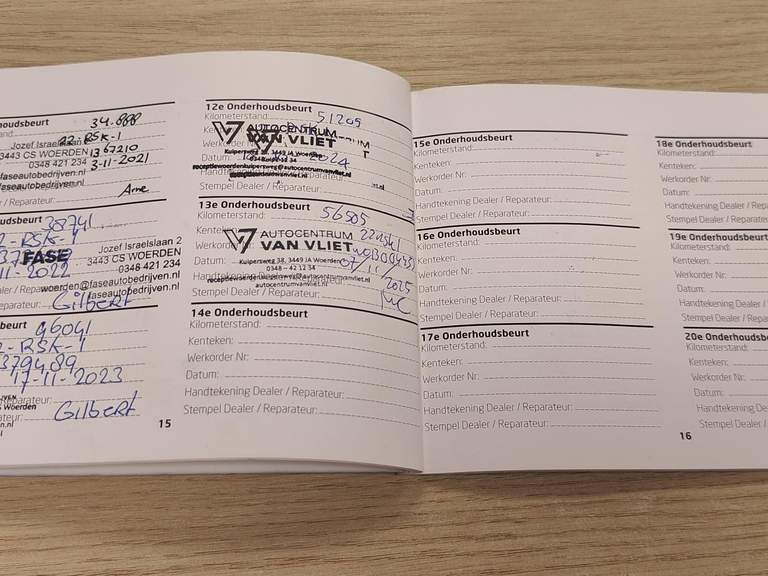 houdsbeurt 34.888
22-RSK-1
Jozef Israelslaan 2
3443 CS WOERDEN
0348 421 234
1367210
3-11-2021
faseautobedrijven.nl
/ Reparateur: Arne
udsbeurt 38341
2-RSK-1
Jozef Israelslaan 2
FASE 3443 CS WOERDEN
11-2022 0348 421 234
woerden@faseautobedrijven.nl
faseautobedrijven.nl
eparateur: Gilbert
beurt 46041
2-RSK-1
379489
17-11-2023
Reparateur:
Woerden
Gilbert
15
12e Onderhoudsbeurt
Kilometerstand: 51209
AUTOCENTRUM
VAN VLIET
Werkorder
Datum: 2024
Stempel Dealer / Reparateur:
13e Onderhoudsbeurt
Kilometerstand: 56505
AUTOCENTRUM
VAN VLIET
Kuipersweg 38, 3449 JA Woerden
0348 - 42 12 34
07/11/2025
autocentrumvanvliet.nl
Stempel Dealer / Reparateur:
14e Onderhoudsbeurt
Kilometerstand:
Kenteken:
Werkorder Nr:
Datum:
Handtekening Dealer / Reparateur:
Stempel Dealer / Reparateur:
15e Onderhoudsbeurt
Kilometerstand:
Kenteken:
Werkorder Nr:
Datum:
Handtekening Dealer / Reparateur:
Stempel Dealer / Reparateur:
16e Onderhoudsbeurt
Kilometerstand:
Kenteken:
Werkorder Nr:
Datum:
Handtekening Dealer / Reparateur:
Stempel Dealer / Reparateur:
17e Onderhoudsbeurt
Kilometerstand:
Kenteken:
Werkorder Nr:
Datum:
Handtekening Dealer / Reparateur:
Stempel Dealer / Reparateur:
18e Onderhoudsbeurt
Kilometerstand:
Kenteken:
Werkorder Nr:
Datum:
Handtekening Dealer / Re
Stempel Dealer / Repara
19e Onderhoudsbeu
Kilometerstand:
Kenteken:
Werkorder Nr:
Datum:
Handtekening Dealer /
Stempel Dealer / Rep
20e Onderhoudsb
Kilometerstand:
Kenteken:
Werkorder Nr:
Datum:
Handtekening De
Stempel Dealer /
16